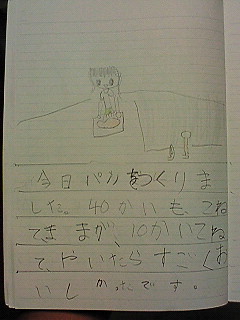 今日パンをつくりま
した。40かいも、こね
てままが、10かいてね
て、やいたらすごくお
いしかったです。